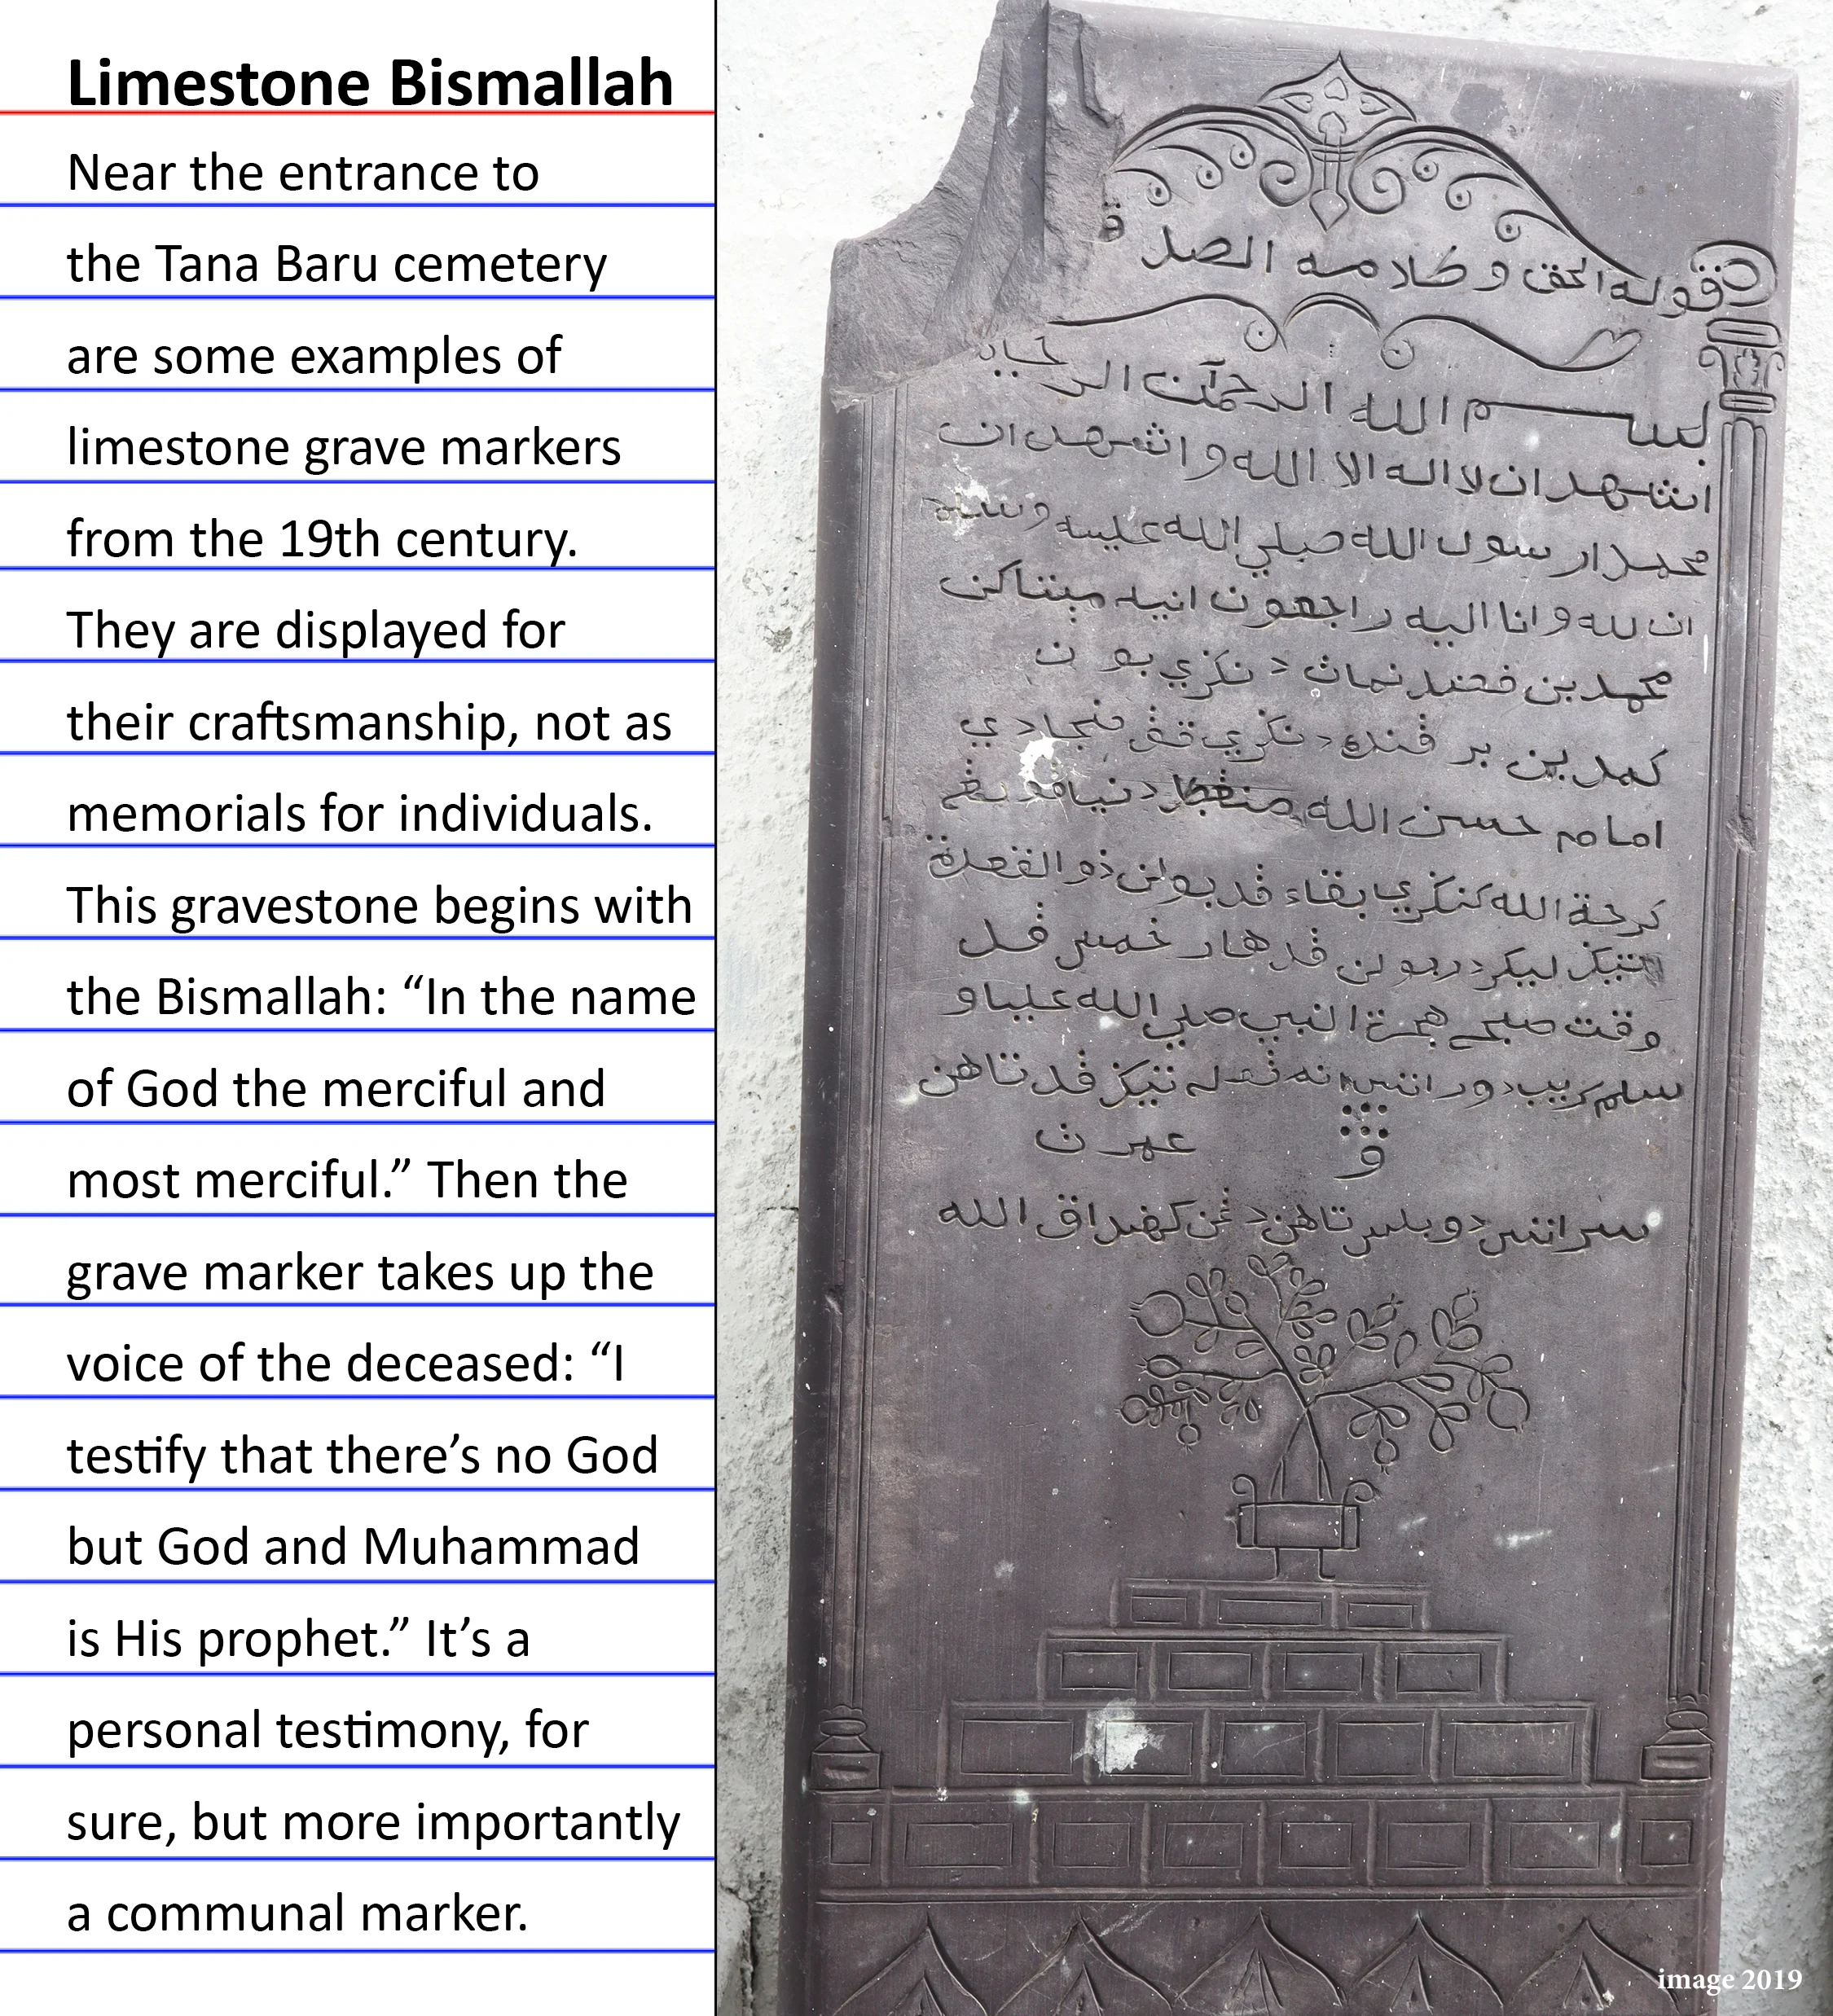 Limestone Bismallah
Near the entrance to
the Tana Baru cemetery
are some examples of
limestone grave markers
from the 19th century.
They are displayed for
their craftsmanship, not as
memorials for individuals.
This gravestone begins with
the Bismallah: “In the name
of God the merciful and
most merciful.” Then the
grave marker takes up the
voice of the deceased: “I
testify that there’s no God
but God and Muhammad
is His prophet.” It’s a
personal testimony, for
sure, but more importantly
a communal marker.
قوله الحق و كلامه الصد ق
بسم الله الرحمن الر
اشهد ان لا اله الا الله و اشهد ان
محمد ار سول الله صلي الله عليه وسلم
ان لله و انا اليه راجعون انيله
محمد بن نماث د نكري
كمد ين د نكري
امام حسن الله دنيا
كرحمة الله كنكري بقاء ڤد بولن ذو القعدة
ليكر بولن ڤد هار خمس ڤل
وقت صبح هجرة النبي صلي الله عليه و
سلم سريب دو راتس تيڬ ڤد تاهن
و
سراتس دو بلس تاهن الله
image 2019